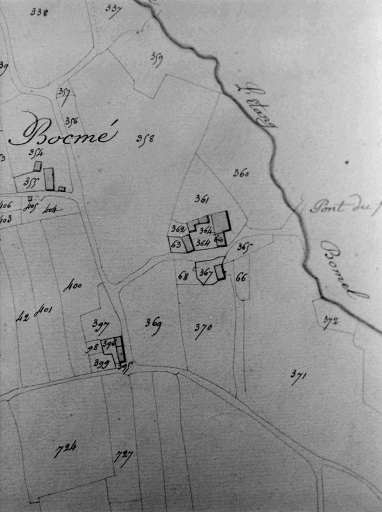 338
337
359
357
356
Bocmé
358
354
355
360
361
L'étang
406
405
404
403
362
364
63
364
Pont du
365
Bomel
68
367
66
400
401
42
397
369
370
372
98
396
399
395
371
724
727